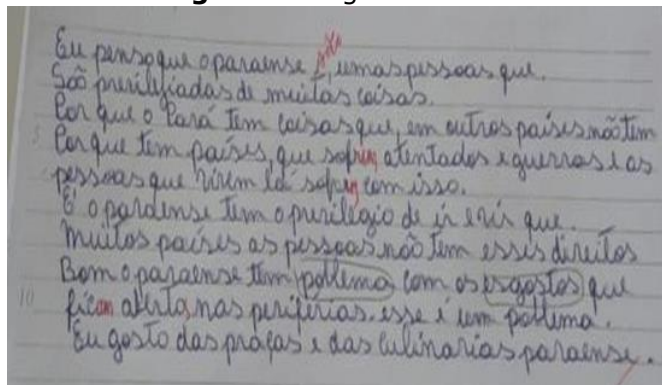 Eu penso que o paraense é, umas pessoas que.
São previlejiadas de muitas coisas.
Por que o Pará tem coisas que, em outros países não tem
5 Por que tem países, que sofrem atentados e guerras e as
pessoas que vivem lá sofrem com isso.
E o paraense tem o previlegio de ir e vir que.
muitos países as pessoas não tem esses direitos
Bom o paraense tem poblema com os esgostos que
10 ficam aberto, nas periferias. esse é um poblema.
Eu gosto das praças e das culinarias paraense.